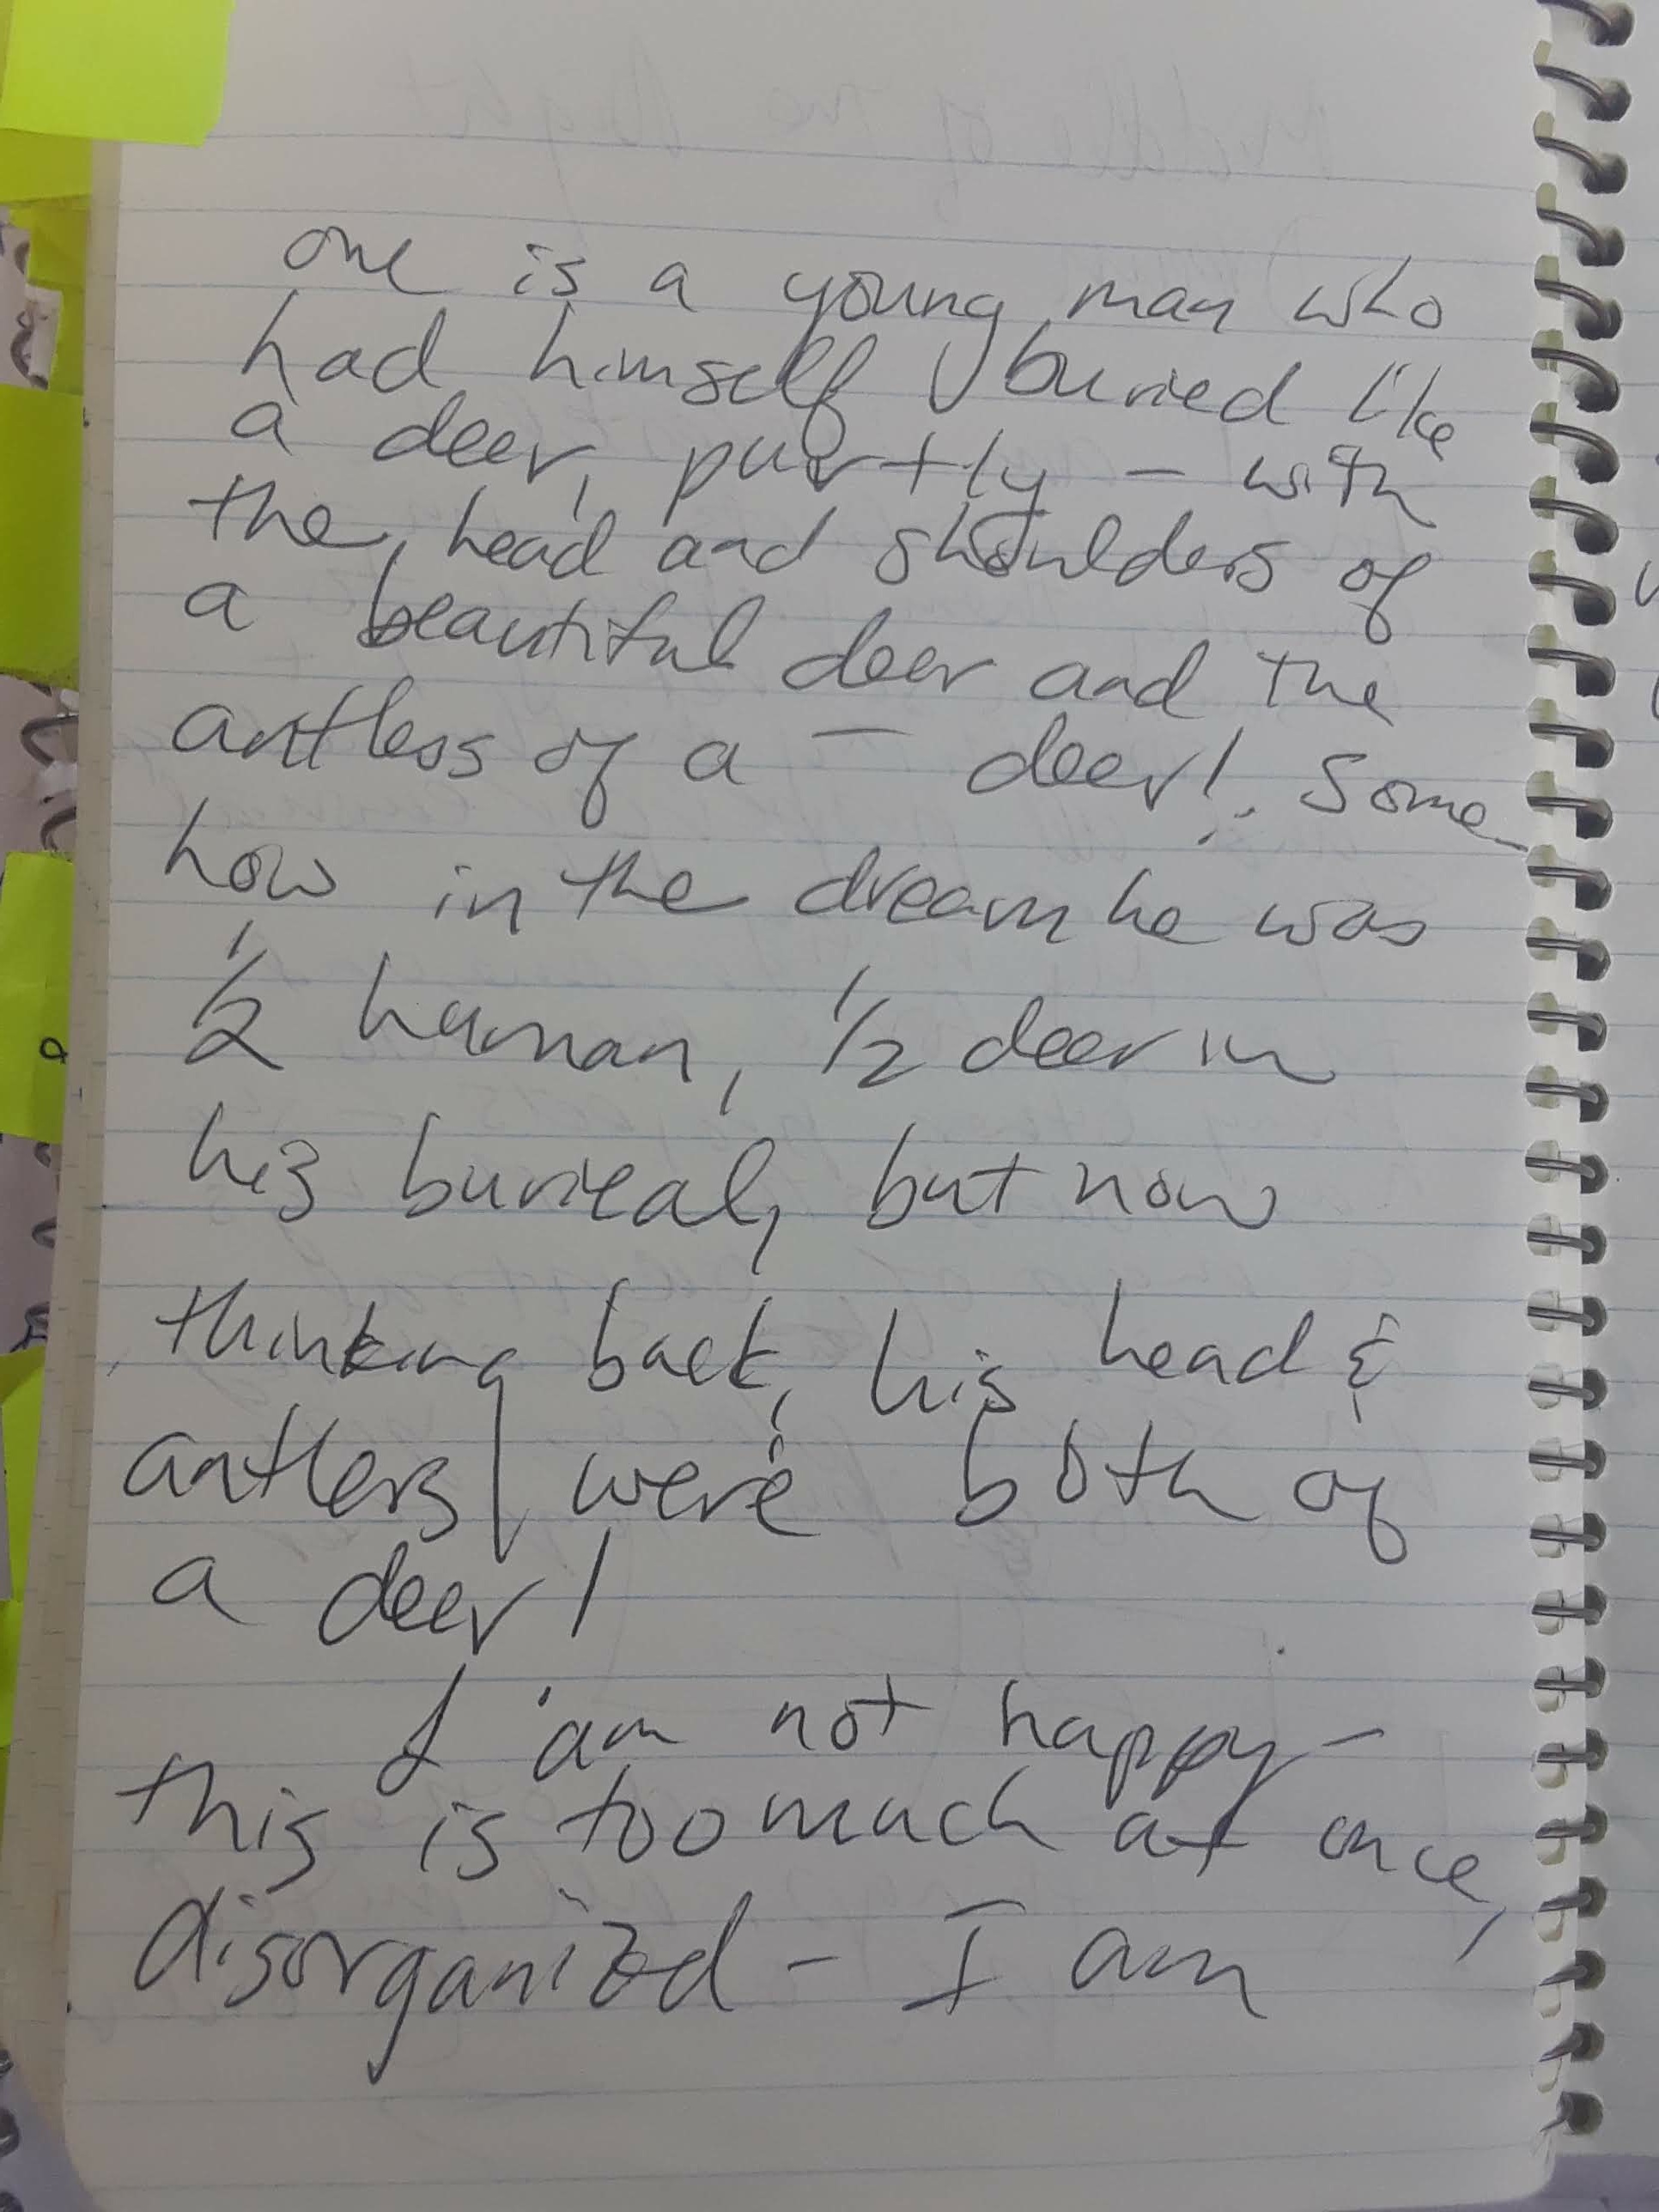 one is a young man who
had himself buried like
a deer, partly – with
the head and shoulders of
a beautiful deer and the
antlers of a – deer! Some-
how in the dream he was
1/2 human, 1/2 deer in
his burieal, but now
thinking back, his head &
antlers were both of
a deer!
I am not happy –
this is too much at once,
disorganized – I am